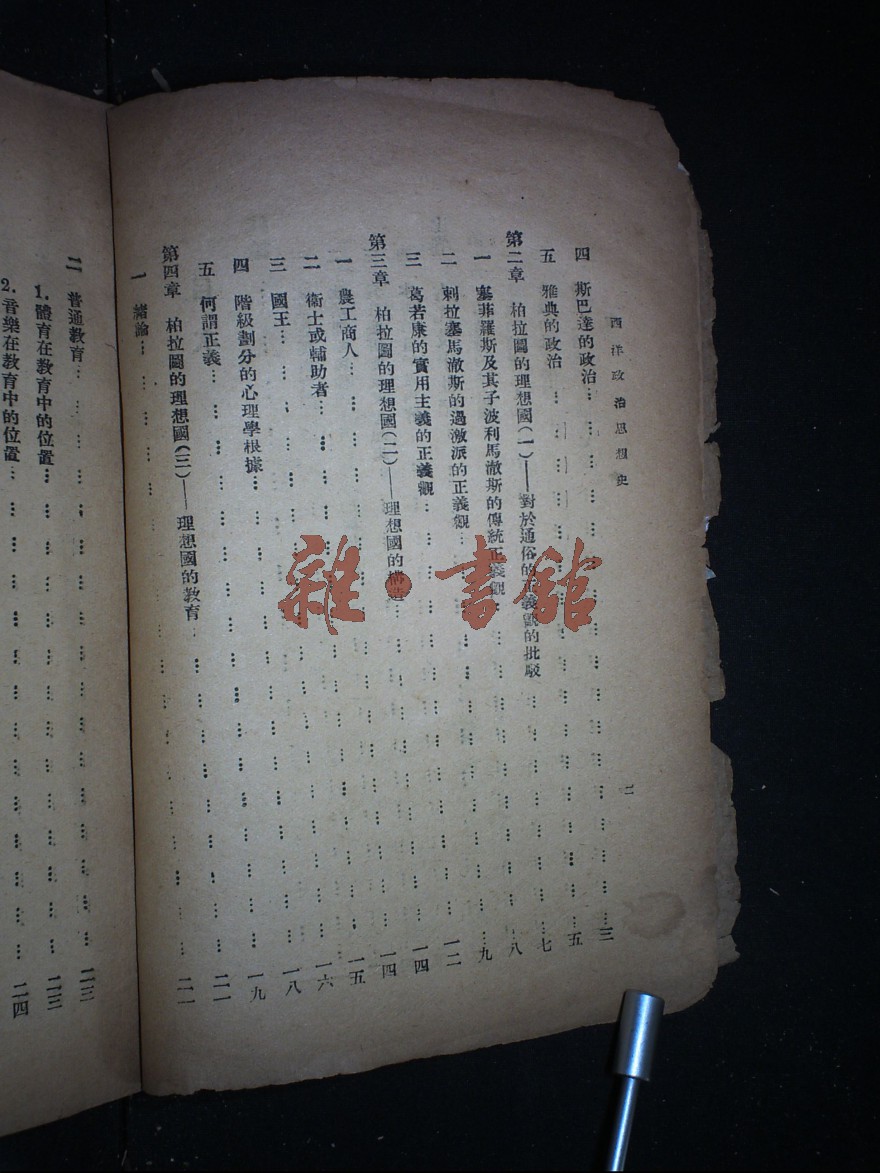 西洋政治思想史
二
四 斯巴達的政治……三
五 雅典的政治……五
第二章 柏拉圖的理想國(一)——對於通俗的正義觀的批駁……七
一 塞菲羅斯及其子波利馬澈斯的傳統正義觀……八
二 刺拉塞馬澈斯的過激派的正義觀……九
三 葛若康的實用主義的正義觀……一二
第三章 柏拉圖的理想國(二)——理想國的構造……一四
一 農工商人……一四
二 衛士或輔助者……一五
三 國王……一六
四 階級劃分的心理學根據……一八
五 何謂正義……一九
第四章 柏拉圖的理想國(三)——理想國的教育……二一
一 緒論……二一
二 普通教育……二三
1. 體育在教育中的位置……二三
2. 音樂在教育中的位置……二四
雜·書館